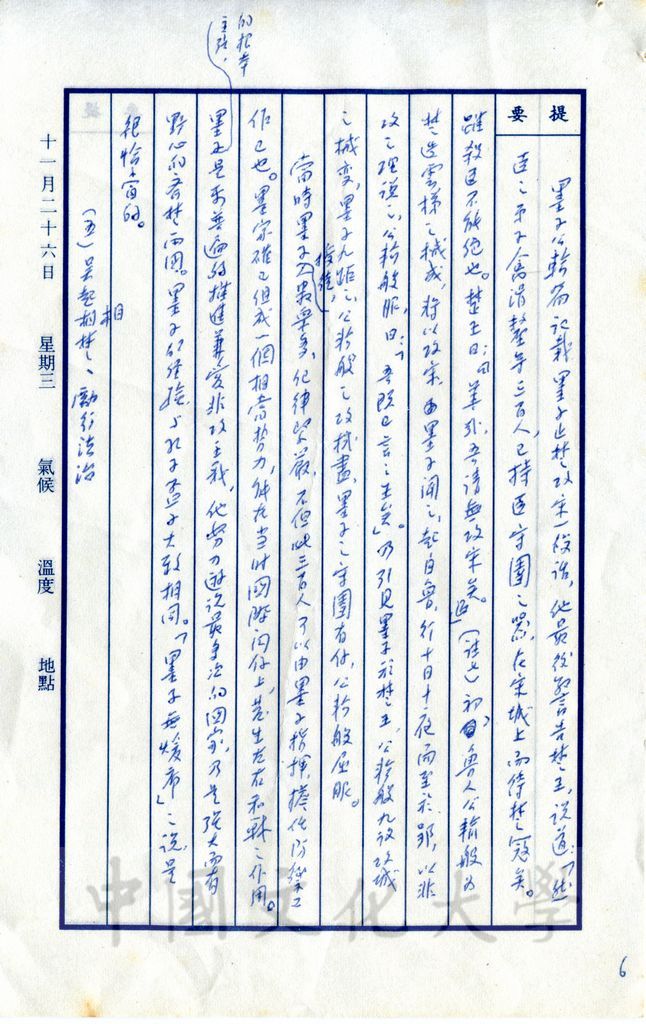 的根本
主張，
提要
墨子公輸篇記載墨子止楚攻宋一段話，他最後警告楚王，說道「然
臣之弟子禽滑釐等三百人，已持臣守圉之器，在宋城上而待楚寇矣。
雖殺臣不能絕也。楚王曰：善哉，吾請無攻宋矣。」（註七）初，魯人公輸般為
楚造雲梯之械成，將以攻宋，墨子聞之，起自魯，行十日十夜而至於郢，以非
攻之理說之，公輸般服，曰：「吾既已言之王矣」。乃引見墨子於楚王，公輸般九設攻城
之械變，墨子九距之，公輸般之攻械盡，墨子之守圉有餘，公輸般屈服。
當時墨子眾，紀律嚴，不但此三百人可以由墨子指揮，擔任防禦工
作已也。墨家確已組成一個相當勢力，能在當時國際間，發生左右和戰之作用。
墨子是要普遍的推進兼愛非攻主義，他努力遊說最多次的國家，乃是強大而有
野心的齊楚兩國。墨子的經驗與孔子孟子大致相同。「墨子無煖席」之說，是
很恰當的。
（五）吳起相楚、勵行法治
相
十一月二十六日 星期三 氣候 溫度 地點
中國文化大學
6